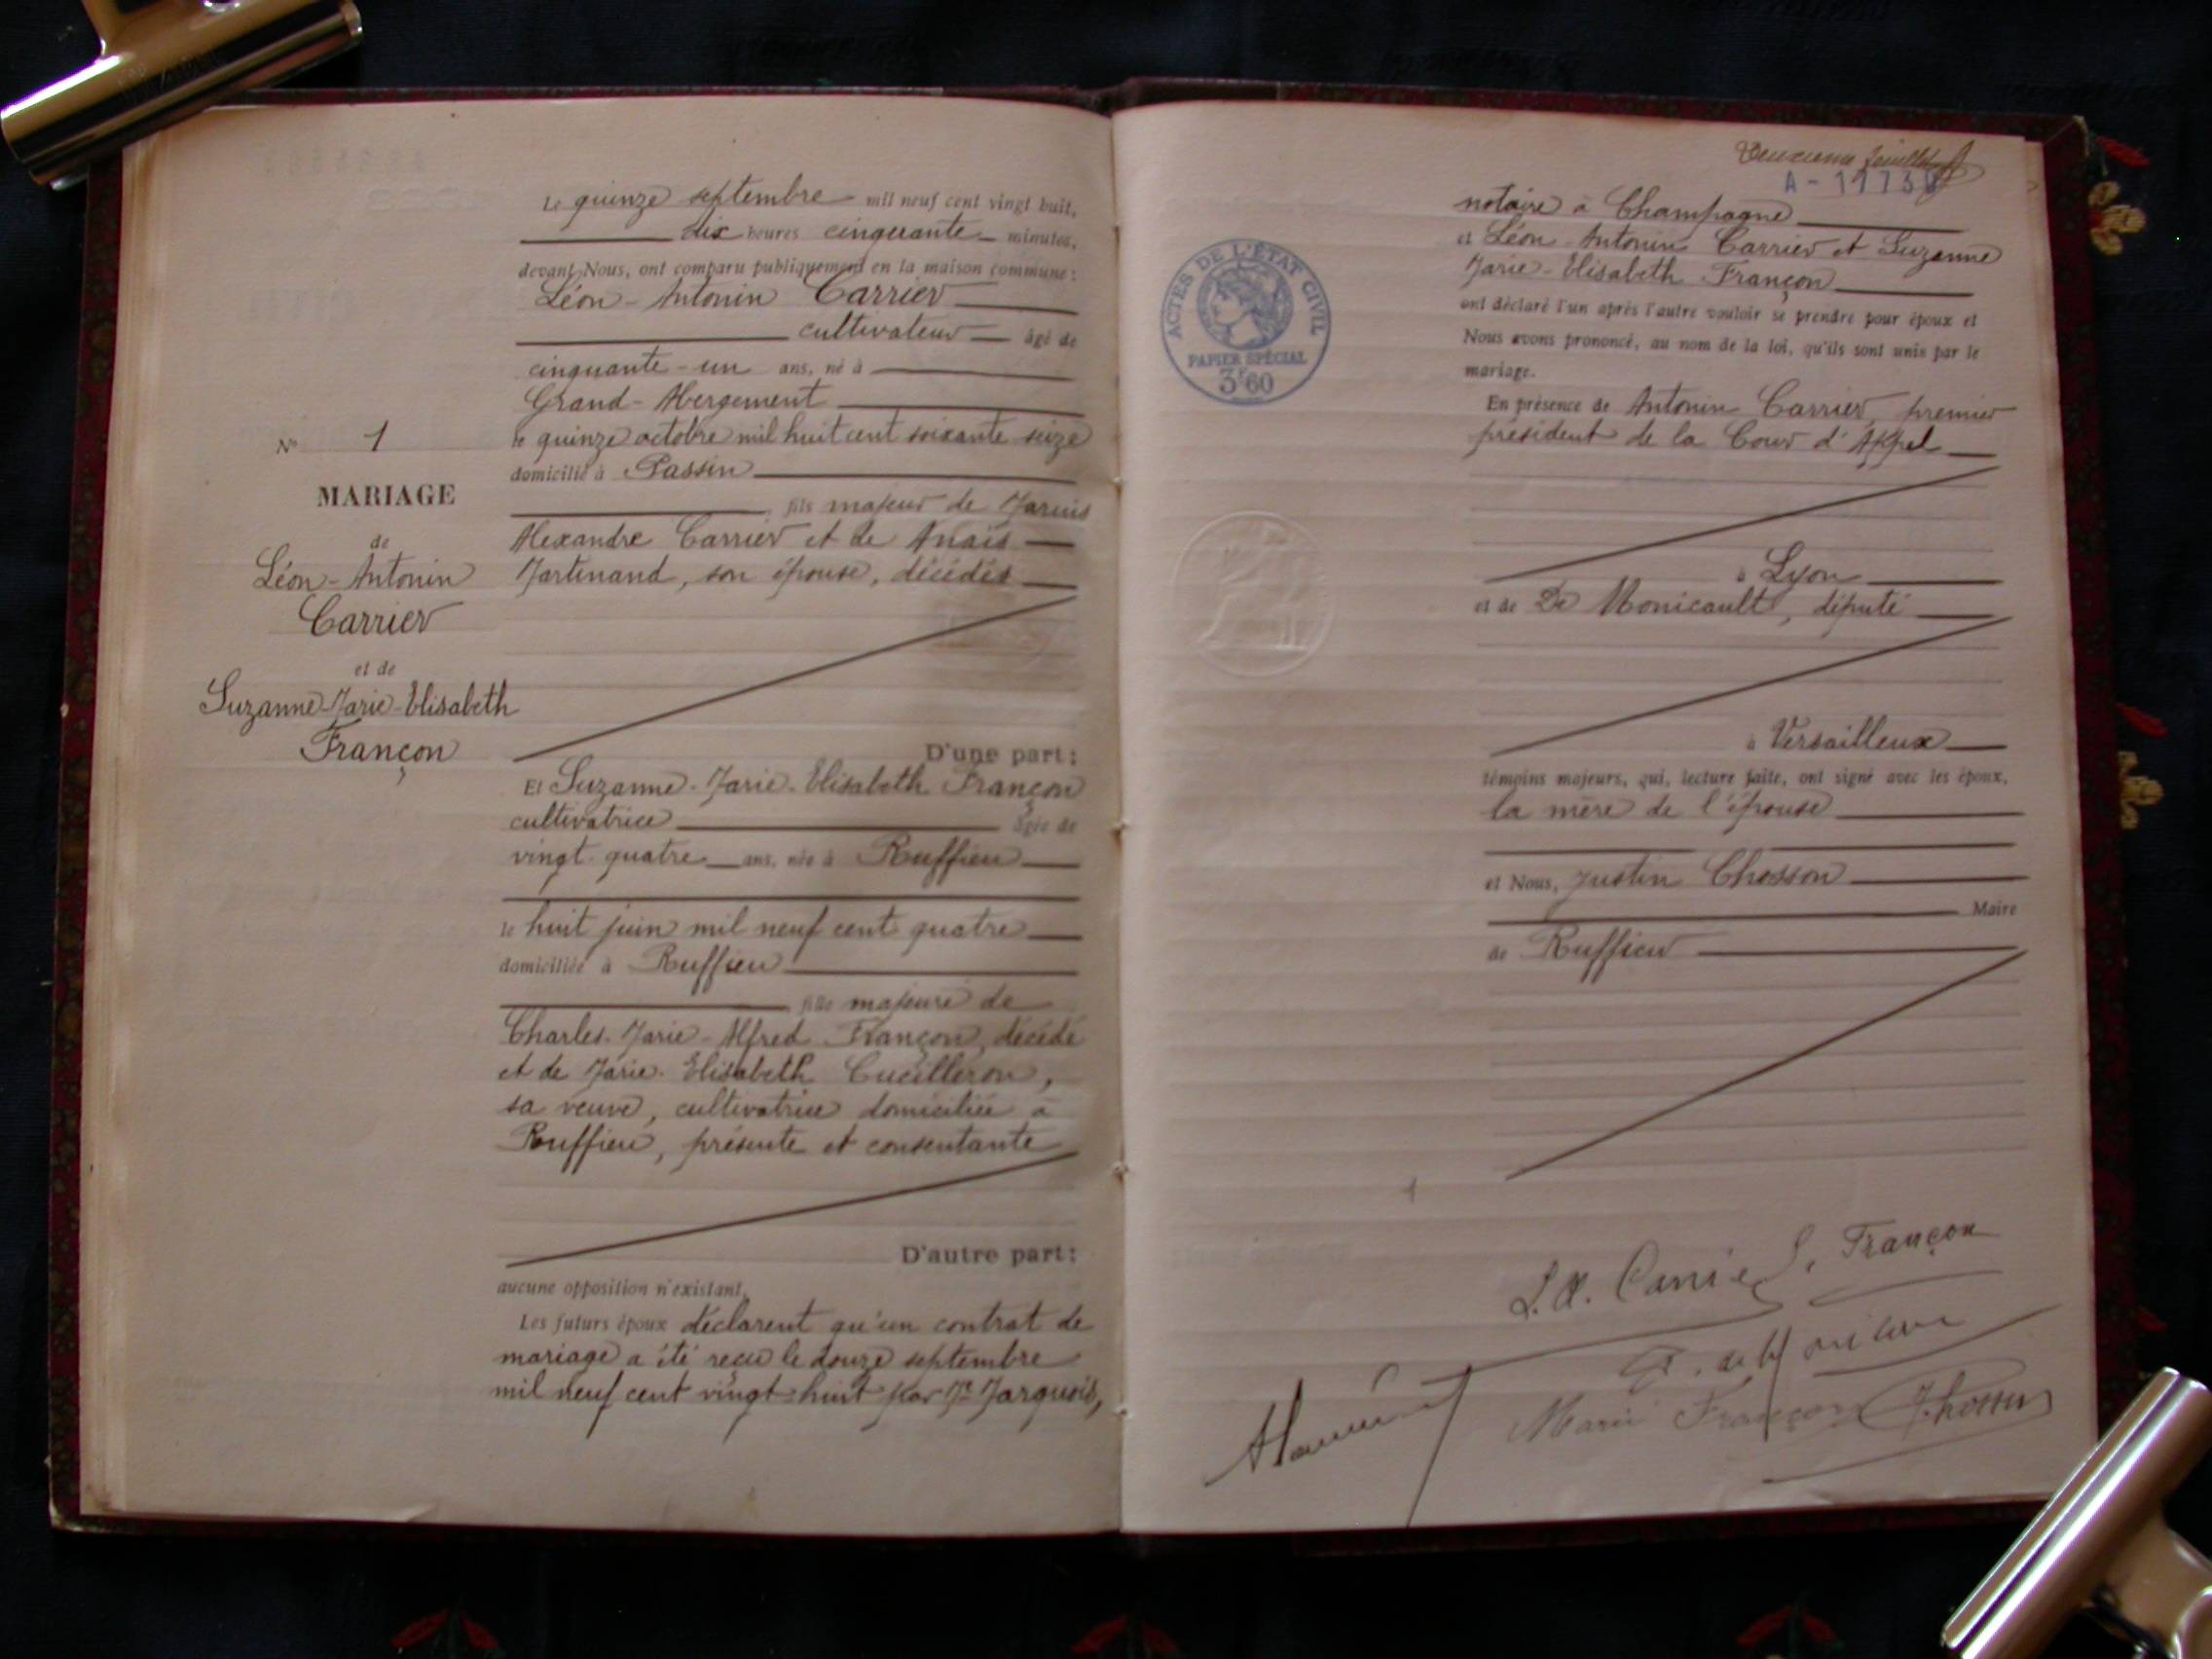 Le quinze septembre mil neuf cent vingt huit,
dix heures cinquante minutes,
devant Nous, ont comparu publiquement en la maison commune :
Léon-Antonin Carrier
cultivateur âgé de
cinquante-un ans, né à
Grand-Abergement
le quinze octobre mil huit cent soixante seize
domicilié à Passin
fils majeur de Marius
Alexandre Carrier et de Anaïs
Martinand, son épouse, décédés
N° 1
MARIAGE
de
Léon-Antonin
Carrier
et de
Suzanne-Marie-Elisabeth
Françon
D'une part :
Et Suzanne-Marie-Elisabeth Françon
cultivatrice âgée de
vingt-quatre ans, née à Ruffieu
le huit juin mil neuf cent quatre
domiciliée à Ruffieu
fille majeure de
Charles-Marie-Alfred Françon, décédé
et de Marie-Elisabeth Cueilleron,
sa veuve, cultivatrice domiciliée à
Ruffieu, présente et consentante
D'autre part :
aucune opposition n'existant.
Les futurs époux déclarent qu'un contrat de
mariage a été reçu le douze septembre
mil neuf cent vingt-huit par Me Marquois,
Deuxième feuillet
A-1173
notaire à Champagne
et Léon-Antonin Carrier et Suzanne
Marie-Elisabeth Françon
ont déclaré l'un après l'autre vouloir se prendre pour époux et
Nous avons prononcé, au nom de la loi, qu'ils sont unis par le
mariage.
En présence de Antonin Carrier, premier
président de la Cour d'Appel
à Lyon
et de De Monicault, député
à Versailleux
témoins majeurs, qui, lecture faite, ont signé avec les époux,
la mère de l'épouse
et Nous, Justin Chosson
Maire
de Ruffieu
ACTES DE L'ÉTAT CIVIL
PAPIER SPÉCIAL
3F60
L.A. Carrier S. Françon
Marie Françon J. Chosson